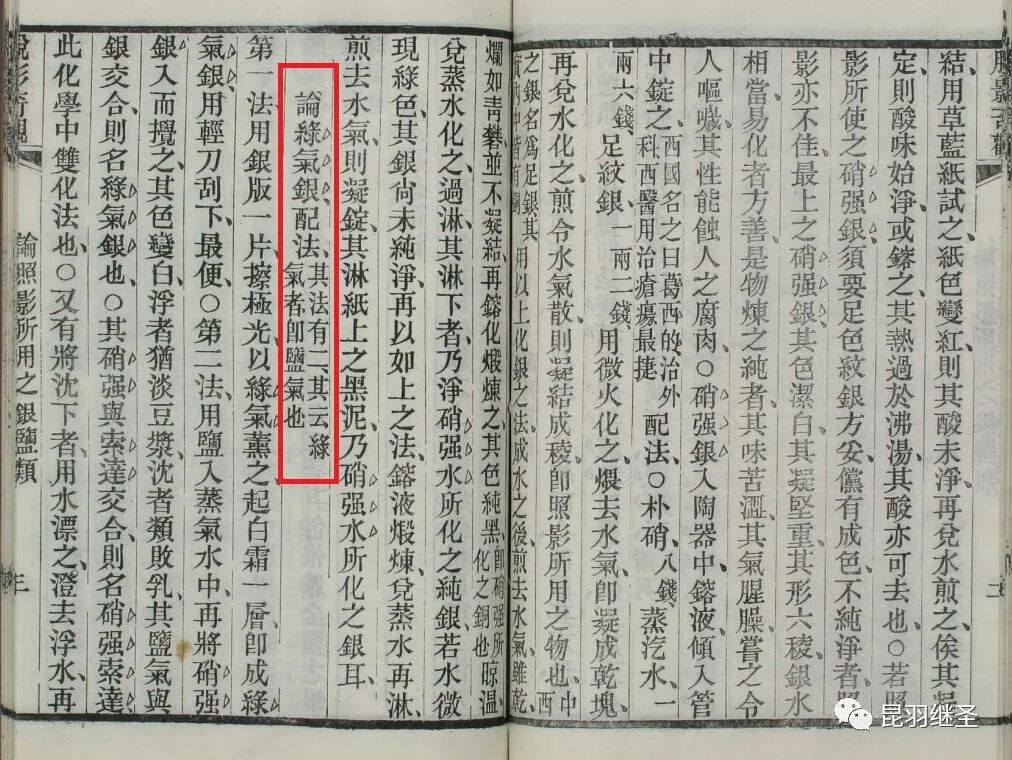 脫影奇觀
結用草藍紙試之、紙色變紅、則其酸未淨、再兌水煎之、俟其
定、則酸味始淨、或鎔之、其熱過於沸湯、其酸亦可去也、○若照
影所使之硝强銀、須要足色紋銀方妥、儻有成色、不純淨者、
影亦不佳、最上之硝强銀、其色潔白、其凝堅重、其形六稜、銀水
相當、易化者方善、是物煉之純者、其味苦澀、其氣腥臊、嘗之令
人嘔噦、其性能蝕人之腐肉、○硝强銀入陶器中鎔液、傾入管
中錠之、西國名之曰葛西的、治外
科、西醫用治瘡瘍最捷
配法、○朴硝、八錢、蒸汔水、一
兩六錢、足紋銀、一兩二錢、用微火化之、煨去水氣、卽凝成乾塊、
再兌水化之、煎令水氣散、則凝結成稜、卽照影所用之物也、中西
之銀名爲足銀、其
用以上化銀之法、成水之後、煎去水氣、雖乾
爛如靑礬、並不凝結、再鎔化煅煉之、其色純黑、卽硝强所
化之銅也
晾溫
兌蒸水化之、過淋、其淋下者、乃淨硝强水所化之純銀、若水微
現綠色、其銀尙未純淨、再以如上之法、鎔液煅煉、兌蒸水再淋、
煎去水氣、則凝錠、其淋紙上之黑泥、乃硝强水所化之銀耳、
論綠氣銀配法、其法有二、其云綠
氣者、卽鹽氣也
第一法用銀版一片、擦極光、以綠氣薰之、起白霜一層、卽成綠
氣銀、用輕刀刮下、最便、○第二法用鹽入蒸氣水中、再將硝强
銀入而攪之、其色變白、浮者猶淡豆漿、沈者類敗乳、其鹽氣與
銀交合、則名綠氣銀也、○其硝强與索達交合、則名硝强索達、
此化學中雙化法也、○又有將沈下者、用水漂之、澄去浮水、再
脫影奇觀
論照影所用之銀鹽類
三
昆羽继圣